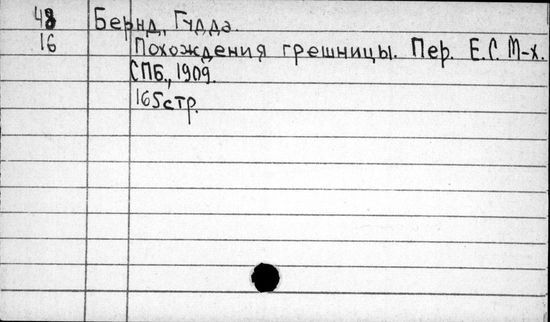 48 Бернд, Гудда.
16 Похождения грешницы. Пер. Е.С. М-х.
СПБ., 1909.
165стр.